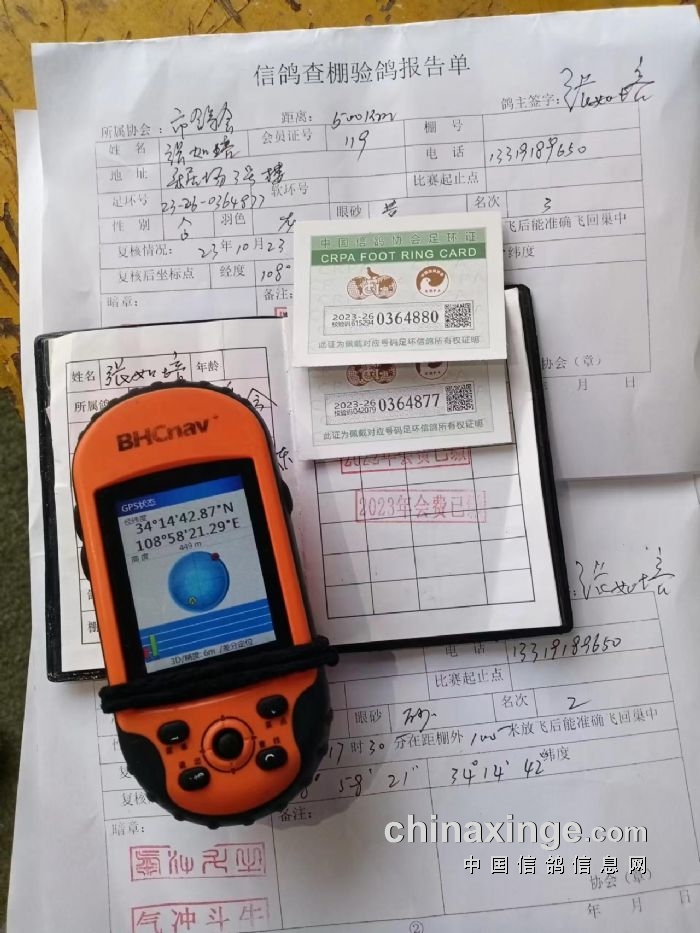 信鸽查棚验鸽报告单
所属协会: 市鸽会 距离: 500Km 鸽主签字: 张如培
姓 名 张如培 会员证号 119 棚 号
地 址 3号楼 电 话 13319189650
足环号 23-26-0364877 软环号 比赛起止点
性 别 羽色 眼砂 名次 3
复核情况: 23年10月23 飞后能准确飞回巢中
复核后坐标点 经度 108° 纬度
暗章: 备注:
中国信鸽协会足环证
CRPA FOOT RING CARD
2023-26 0364880
校验码615294
此证为佩戴对应号码足环信鸽所有权证明
2023-26 0364877
校验码042079
此证为佩戴对应号码足环信鸽所有权证明
协会(章)
年 月 日
姓名 张如培 年龄
所属鸽
2023年会费已
BHCnav
GPS状态
经纬度
34°14'42.87"N
108°58'21.29"E
高度
449 m
3D/精度: 6m /差分定位
张如培
电 话 13319189650
比赛起止点
眼砂 砂 名次 2
17时30分在距棚外100米放飞后能准确飞回巢中
58' 21" 34° 14' 42" 纬度
备注:
暗章:
气冲斗牛
协会(章)
年 月 日
②
chinaxinge.com
中国信鸽信息网